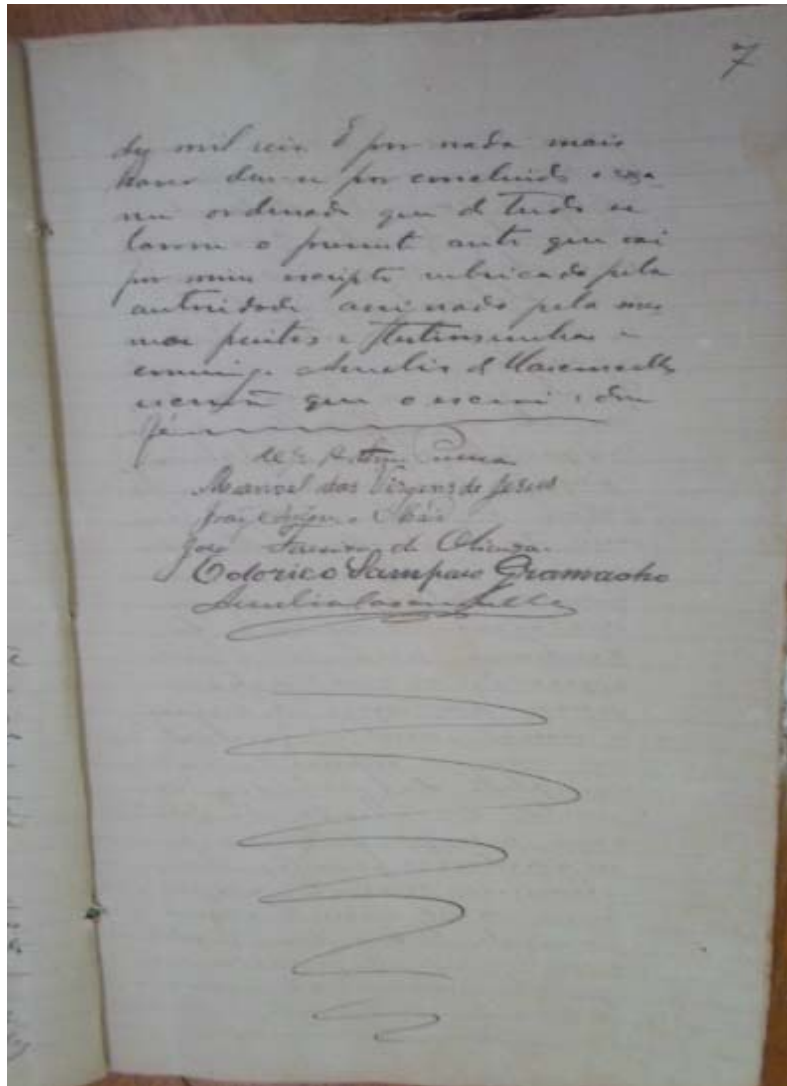 7
mil reis E por nada mais
haver deu-se por concluido o exa
me ordenado que de tudo se
lavrou o presente auto que vai
por mim escripto rubricado pela
autoridade assinado pela mes
ma peritos e testemunhas e
commigo Amelio de Vasconcellos
escrivão que o escrevi e dou
fé
Manoel das Virgens de Jesus
José Ferreira de Oliveira
Odorico Sampaio Gramacho
Amelio Vasconcellos